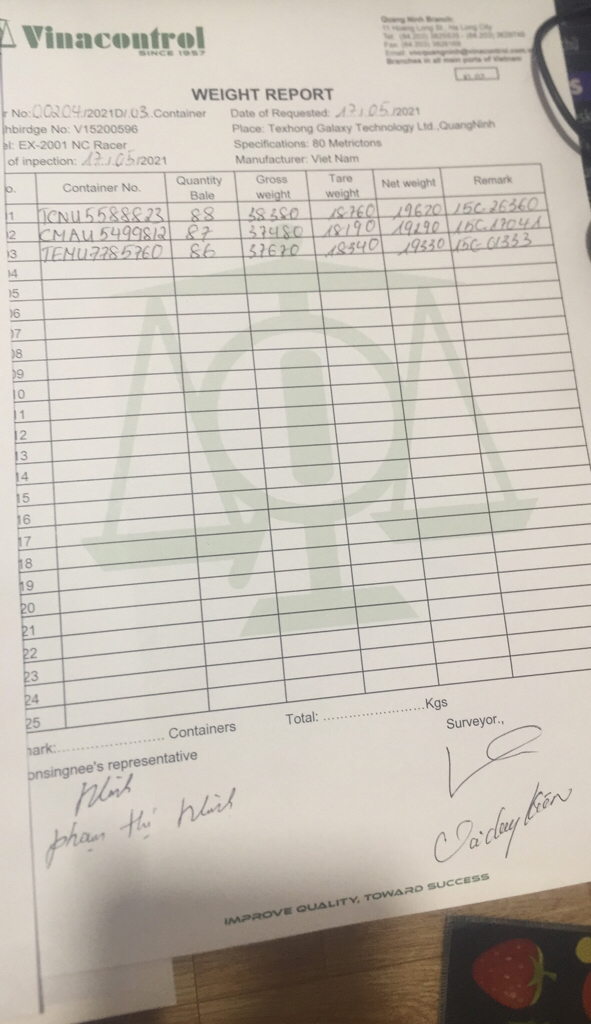 Vinacontrol
SINCE 1957
Quang Ninh Branch:
Branches in all main ports of Vietnam
WEIGHT REPORT
r No: 00204/2021D/ 03 Container
Date of Requested: 17/05/2021
hbirdge No: V15200596
Place: Texhong Galaxy Technology Ltd.,QuangNinh
el: EX-2001 NC Racer
Specifications: 80 Metrictons
of inpection: 17/05/2021
Manufacturer: Viet Nam
o. Container No. Quantity Bale Gross weight Tare weight Net weight Remark
01 TCNU5588823 88 38380 18760 19620 15C-26360
02 CMAU5499812 87 37480 18190 19290 15C-17041
03 TEMU7785760 86 37670 18340 19330 15C-01333
04
05
06
07
08
09
10
11
12
13
14
15
16
17
18
19
20
21
22
23
24
25
nark:.................... Containers Total: ........................Kgs
onsingnee's representative
Surveyor.,
Nhinh
phạm thị Nhinh
IMPROVE QUALITY, TOWARD SUCCESS